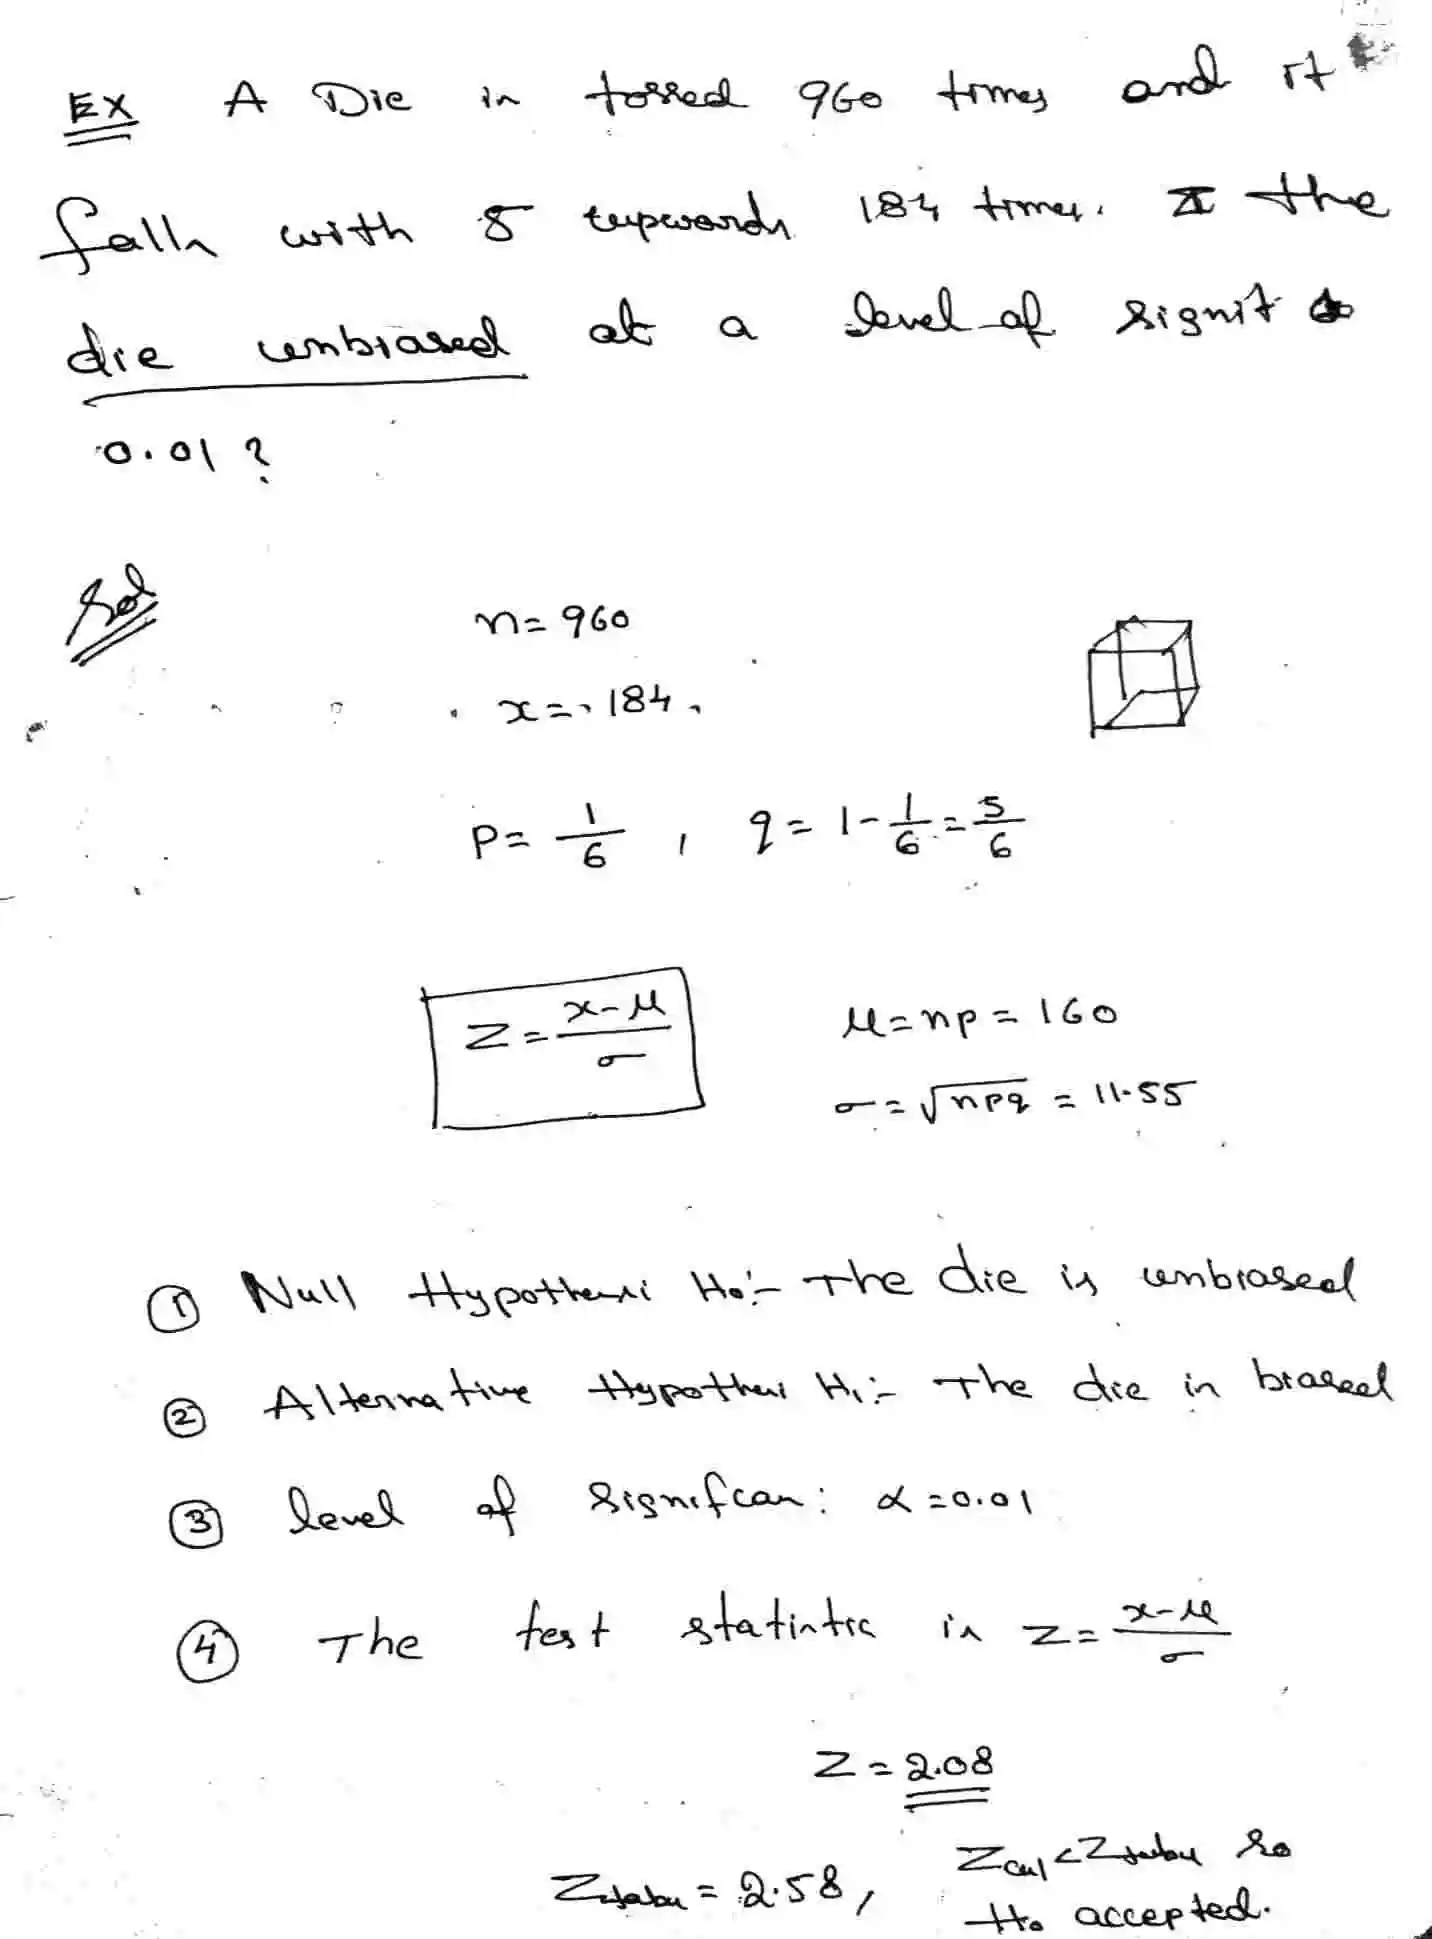 EX A Die is tossed 960 times and it
falls with 5 upwards 184 times. Is the
die unbiased at a level of signif
0.01 ?
Sol n = 960
x = 184
P = 1/6 , q = 1 - 1/6 = 5/6
Z = x-μ/σ μ = np = 160
σ = √npq = 11.55
① Null Hypothesi H₀:- The die is unbiased
② Alternative Hypothesi H₁:- The die is biased
③ level of Signifcan: α = 0.01
④ The test statistic is Z = x-μ/σ
Z = 2.08
Ztabu = 2.58, Zcal < Ztabu so
H₀ accepted.